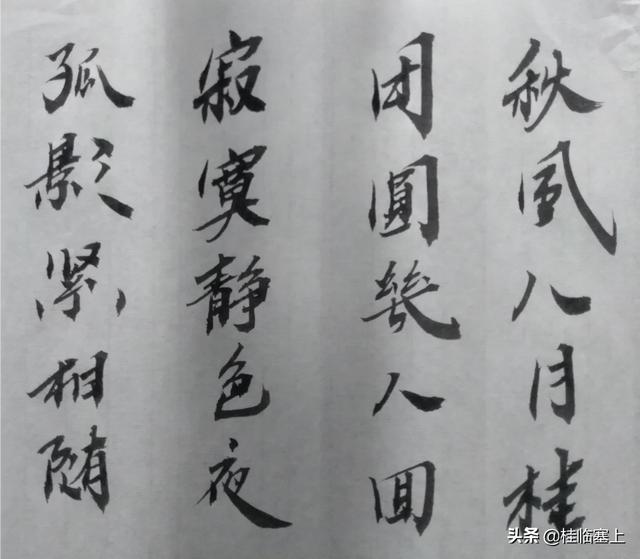 秋風八月桂
团圓幾人囬
寂寞静色夜
孤影紧相随
头条 @桂临塞上